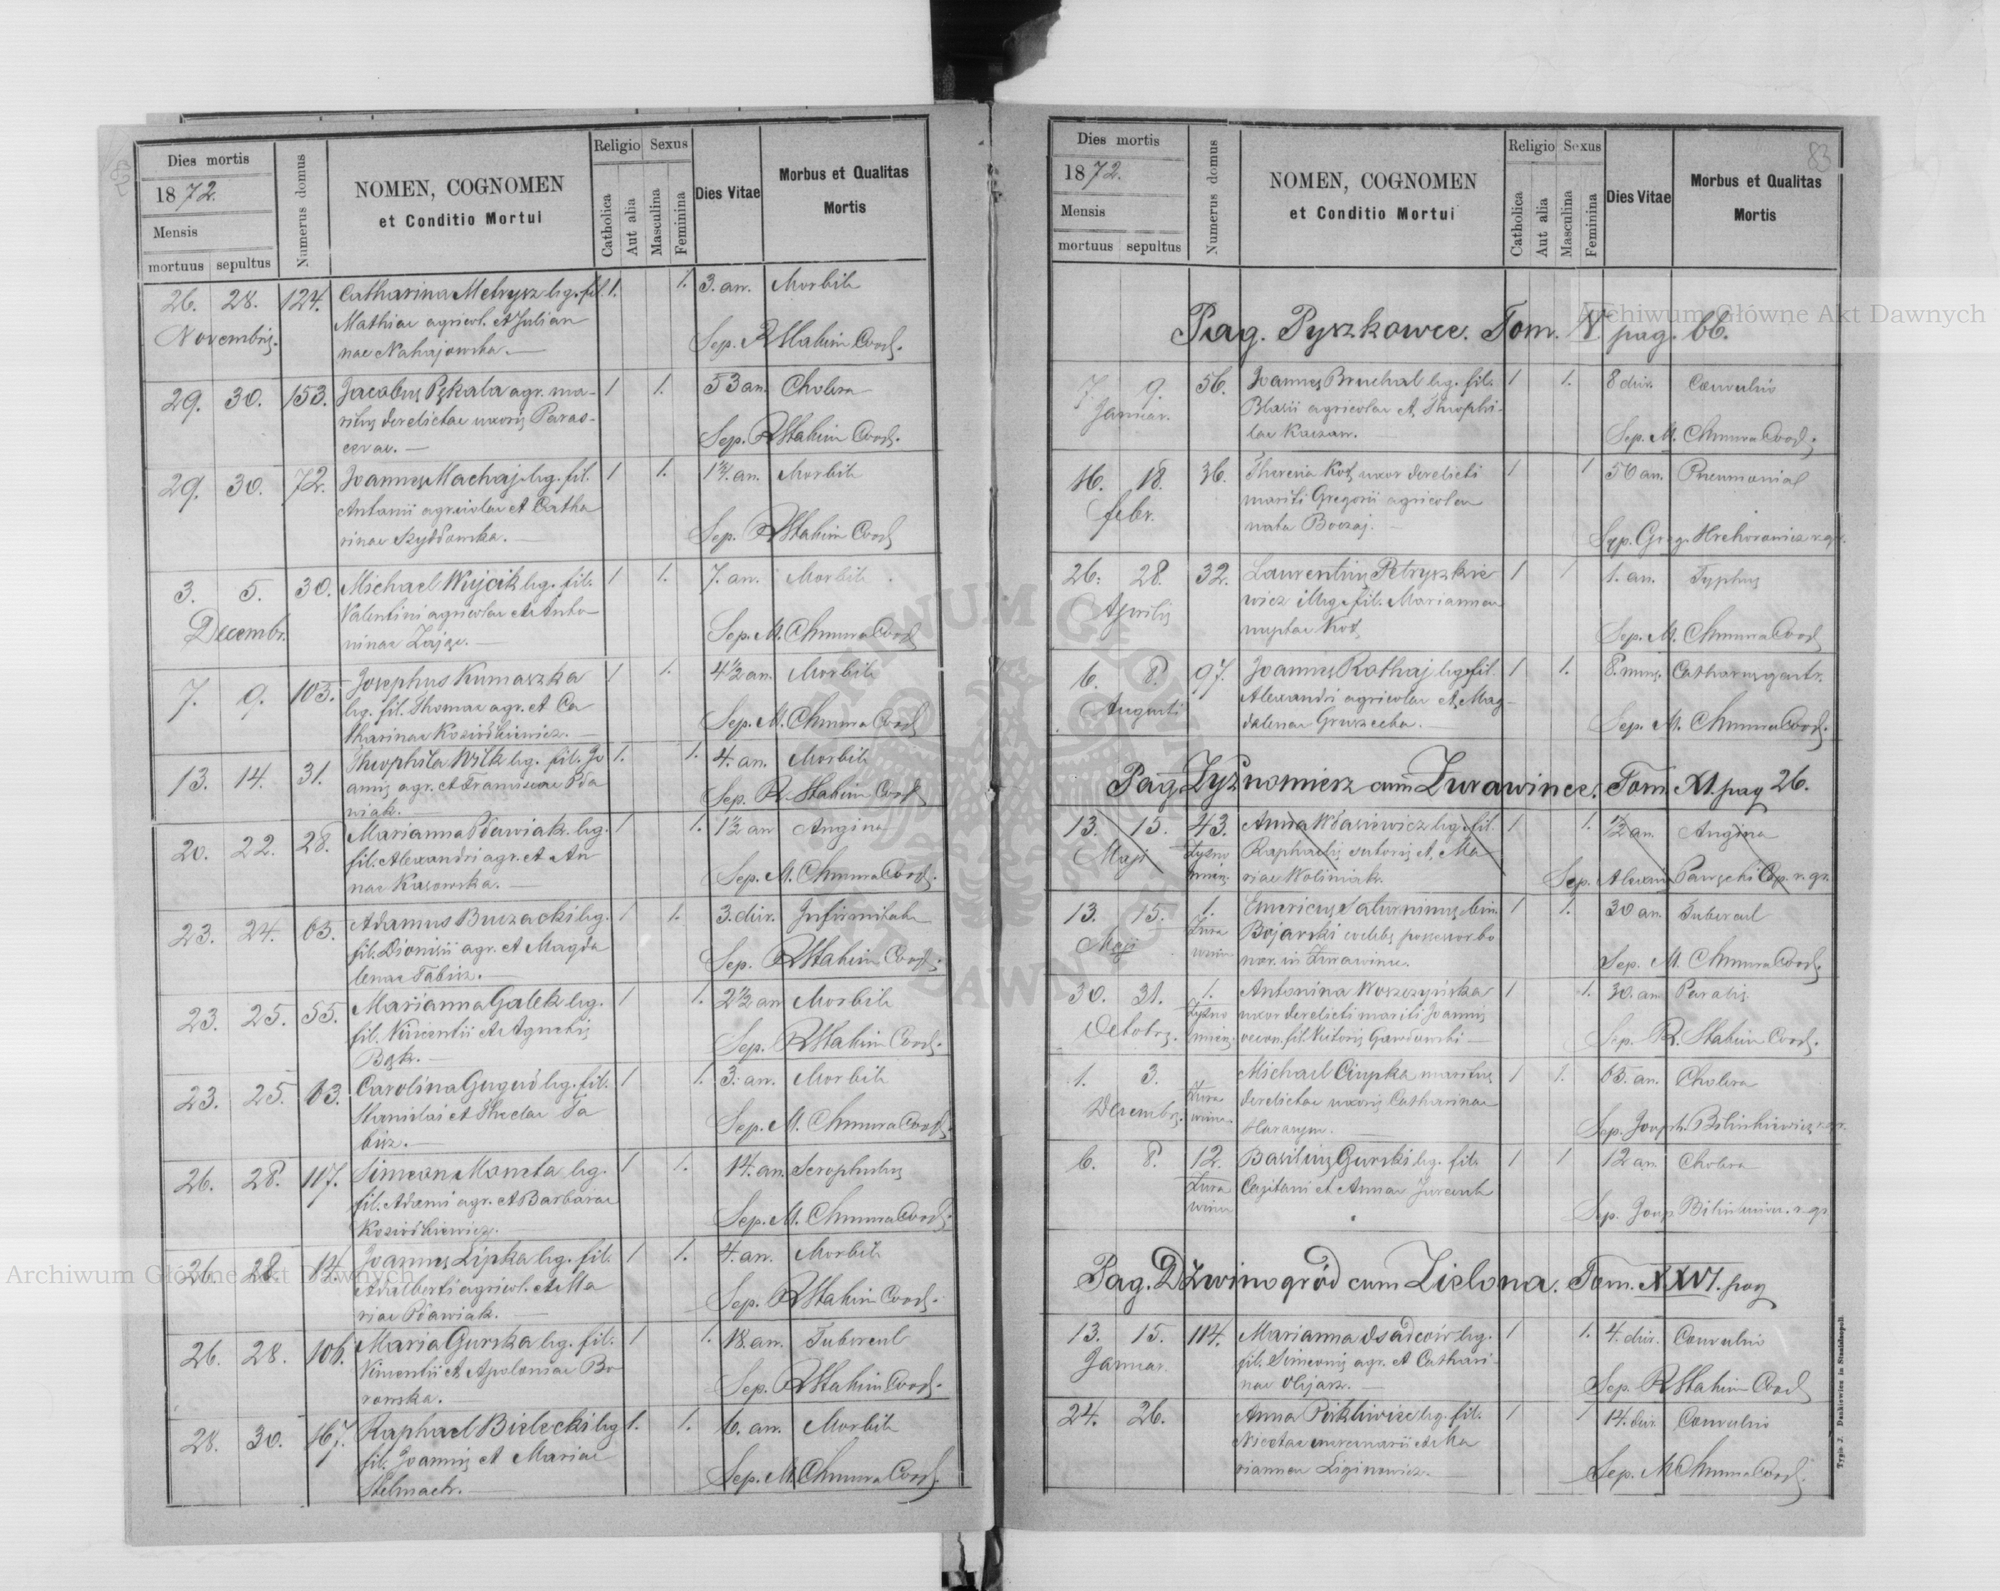 Dies mortis
1872.
Mensis
mortuus sepultus
Numerus domus
NOMEN, COGNOMEN
et Conditio Mortui
Religio
Catholica
Aut alia
Sexus
Masculina
Feminina
Dies Vitae
Morbus et Qualitas
Mortis
26. 28. 124. Catharina Metrysz leg. fil. 1. 1. 3. an. Morbili
Mathiae agricol. et Julian
Novembris.
nae Nahajowska. — Sep. R Stahim Coop.
29. 30. 153. Jacobus Pękala agr. ma- 1 1. 53 an. Cholera
ritus derelictae uxoris Paras-
cevae. — Sep. R Stahim Coop.
29. 30. 72. Joannes Machaj leg. fil. 1 1. an. Morbili
Antonii agricolae et Catha
rinae Szydłowska. — Sep. R Stahim Coop
3. 5. 30. Michael Wujcik leg. fil. 1 1. 7. an. Morbili
Valentini agricolae et Anto-
Decembr.
ninae Zając. — Sep. M. Chmura Coop
7. 9. 105. Josephus Kumaszka 1 1. 4½ an. Morbili
leg. fil. Thomae agr. et Ca
tharinae Koziołkiewicz. — Sep. M. Chmura Coop
13. 14. 31. Theophila Wilk leg. fil. Jo 1. 1. 4. an. Morbili
annis agr. et Franciscae Pda
wiak. Sep. R. Stahim Coop
20. 22. 28. Marianna Pdawiak. leg. 1 1. 1½ an Angina
fil. Alexandri agr. et An
nae Kasowska. — Sep. M. Chmura Coop.
23. 24. 65. Adamus Buczacki leg. 1 1. 3. dier. Infirmitate
fil. Dionisii agr. et Magda
lenae Tabisz. — Sep. R Stahim Coop.
23. 25. 55. Marianna Galek leg. 1 1. 2½ an Morbili
fil. Vincentii et Agnetis
Bąk. — Sep. R Stahim Coop.
23. 25. 63. Carolina leg. fil. 1 1. 3. an. Morbili
Stanislai et Theclae Ta
bisz. — Sep. M. Chmura Coop.
26. 28. 117. Simeon Moneta leg. 1 1. 14. an. Scrophulus
fil. Adami agr. et Barbarae
Koziołkiewicz. Sep. M. Chmura Coop.
26. 28. 14. Joannes Lipka leg. fil. 1 1. 4. an. Morbili
Adalberti agricol. et Ma
riae Pdawiak. — Sep. R Stahim Coop.
26. 28. 106. Maria Gurska leg. fil. 1 1. 18. an. Tubercul
Vincentii et Apoloniae Bo
rowska. — Sep. R Stahim Coop.
28. 30. 167. Raphael Bielecki leg 1. 1. 6. an. Morbili
fil. Joannis et Mariae
Stelmach. — Sep. M. Chmura Coop.
83
Dies mortis
1872.
Mensis
mortuus sepultus
Numerus domus
NOMEN, COGNOMEN
et Conditio Mortui
Religio
Catholica
Aut alia
Sexus
Masculina
Feminina
Dies Vitae
Morbus et Qualitas
Mortis
Pag. Pyszkowce. Tom. V. pag. 66.
7. 9. 56. Joannes Bruchal leg. fil. 1 1. 8 dier. Convulsio
Januar. Blasii agricolae et Theophi-
lae Kaczan. Sep. M. Chmura Coop.
16. 18. 36. Theresia Kot, uxor derelicti 1 1 50 an. Pneumonial
febr. mariti Gregorii agricolae
nata Boczaj. — Sep. Greg. Hrehorowicz r.gr.
26. 28. 32. Laurentius Petryszkie 1 1 1. an. Typhus
Aprilis wicz illeg. fil. Mariannae
nuptae Kot, Sep. M. Chmura Coop
6. 8. 97. Joannes Rathaj leg. fil. 1 1. 8. mens. Catharus gastr.
Augusti Alexandri agricolae et Mag-
dalenae Gruszecka. Sep. M. Chmura Coop.
Pag. Zyznomierz cum Zurawince. Tom XI. pag 26.
13. 15. 43. Anna Własiewicz leg. fil. 1 1. ½ an. Angina
Maji Zyzno Raphaelis sutoris et Ma-
mierz. riae Woliniak. Sep. Alexan Pawęcki Cap. r. gr.
13. 15. 1. Emericus Saturninus bin. 1 1. 30 an. Tubercul
Maji Zura Bojarski coelebs possessor bo
wince nor. in Zurawince. Sep. M. Chmura Coop.
30. 31. 1. Antonina Woszczyńska 1 1. 30. an Paralis
Zyzno uxor derelicti mariti Joannis
Octobrs. mierz. oecon. fil. Victoris Gawdowski — Sep. R. Stahim Coop.
1. 3. Michael Ciupka maritus 1 1. 65. an. Cholera
Decembr. Zura derelictae uxoris Catharinae
wince. Harasym. — Sep. Joseph. Bilinkiewicz r. gr.
6. 8. 12. Basilius Gurski leg. fil. 1 1 12 an. Cholera
Zura Capitani et Annae
wince Sep. Josep Bilinkiewicz. r. gr
Pag. Dźwinogród cum Zielona. Tom. XXVI. pag
13. 15. 114. Marianna leg. 1 1. 4. dier. Convulsio
Januar. fil. Simeonis agr. et Cathari-
nae Olijarz. — Sep. R Stahim Coop
24. 26. Anna leg. fil. 1 1 14. dier Convulsio
Nicetae mercenarii et Ma
riannae Liginowicz. Sep. M Chmura Coop.
Typis J. Dankiewicz in Stanislaopoli.
Archiwum Główne Akt Dawnych
Archiwum Główne Akt Dawnych
ARCHIWUM GŁÓWNE AKT DAWNYCH